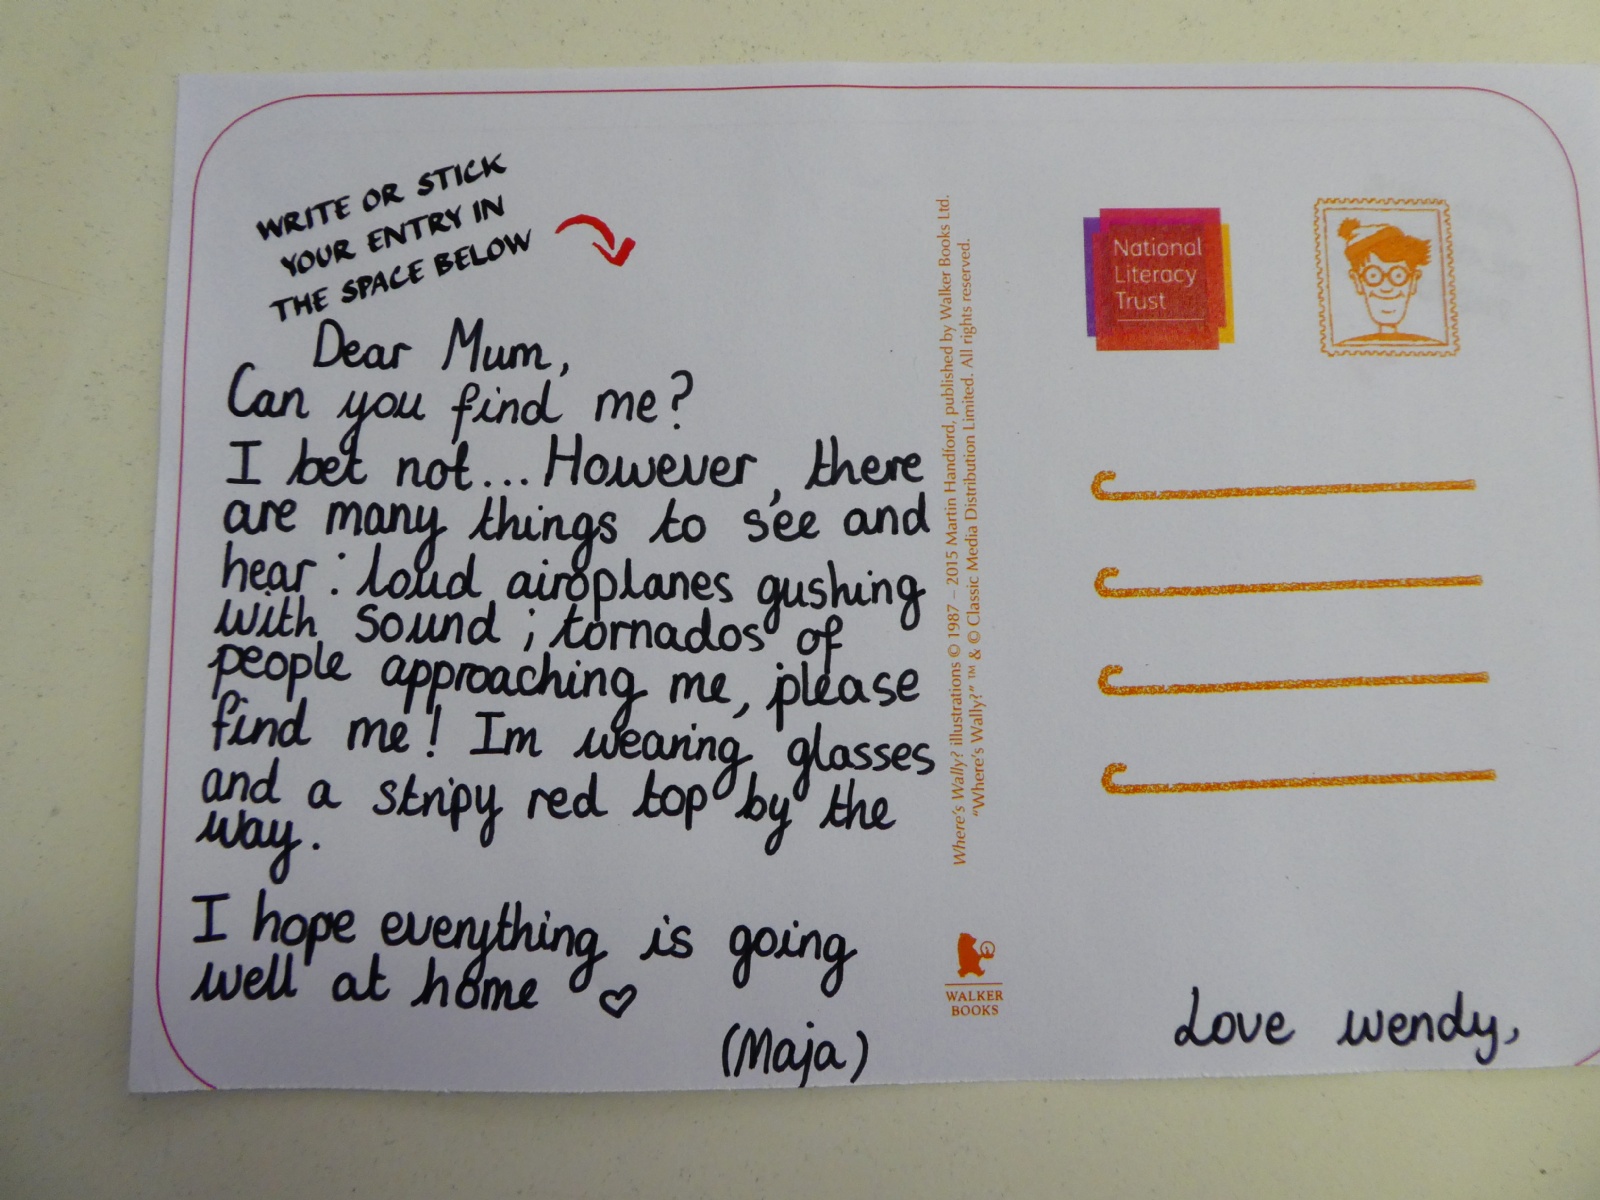 WRITE OR STICK
YOUR ENTRY IN
THE SPACE BELOW
Dear Mum,
Can you find me?
I bet not... However, there
are many things to see and
hear: loud airoplanes gushing
with sound; tornados of
people approaching me, please
find me! Im wearing glasses
and a stripy red top by the
way.
I hope everything is going
well at home ♡
(Maja)
Where's Wally? illustrations © 1987 – 2015 Martin Handford, published by Walker Books Ltd.
"Where's Wally?" ™ & © Classic Media Distribution Limited. All rights reserved.
WALKER
BOOKS
National
Literacy
Trust
Love wendy,